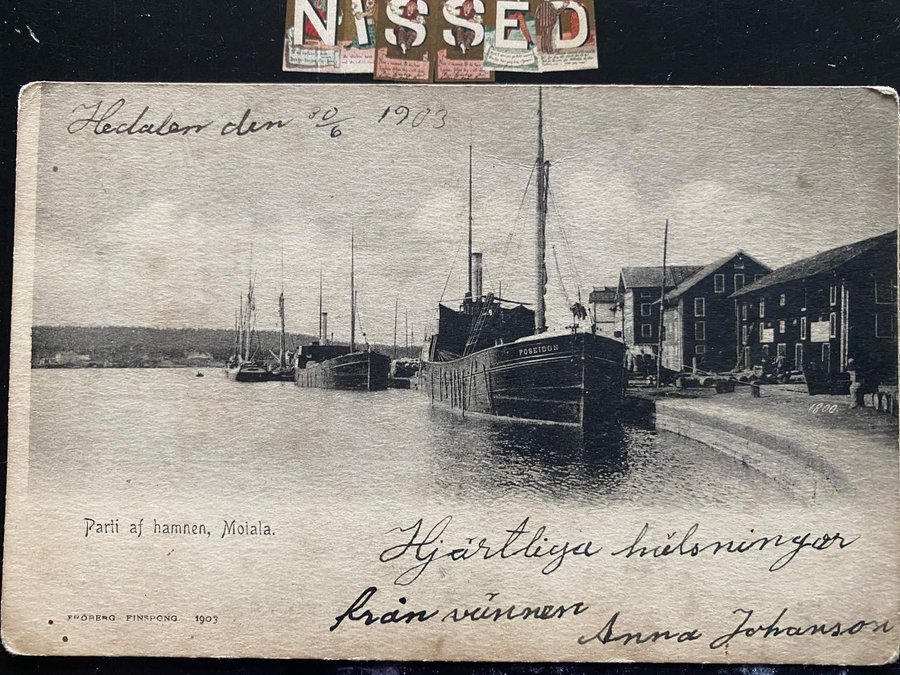 NISSED
Hedalen den 30/6 1903
POSEIDON
1800.
Parti af hamnen, Motala.
Hjärtliga hälsningar
från vännen
FRÖBERG FINSPONG 1903
Anna Johanson